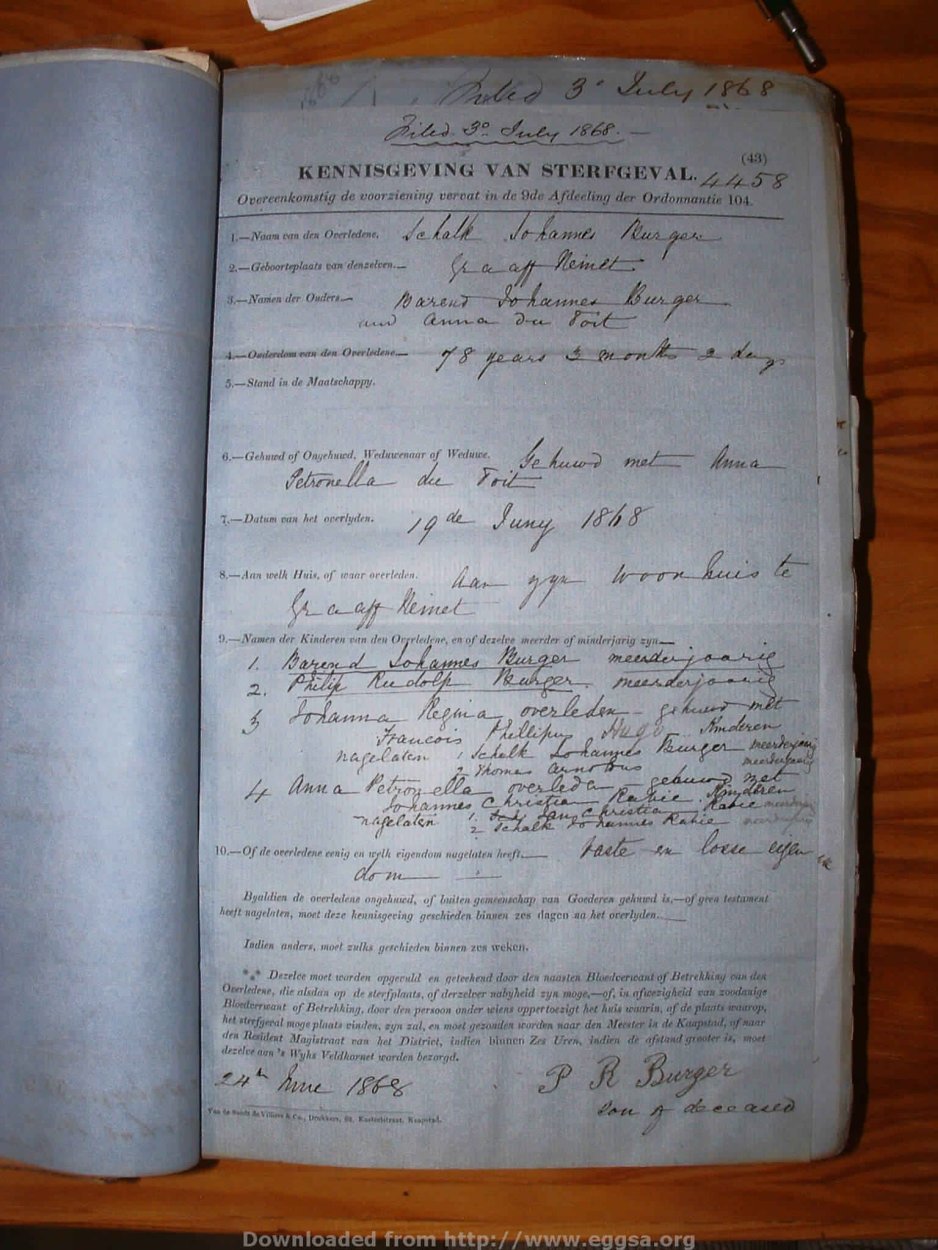 Filed 3º July 1868
Filed 3º July 1868.
(43)
KENNISGEVING VAN STERFGEVAL. 4458
Overeenkomstig de voorziening vervat in de 9de Afdeeling der Ordonnantie 104.
1.—Naam van den Overledene. Schalk Johannes Burger
2.—Geboorteplaats van denzelven.— Graaff Reinet
3.—Namen der Ouders.— Barend Johannes Burger
and Anna du Toit
4.—Ouderdom van den Overledene.— 78 years 3 months 2 days
5.—Stand in de Maatschappy.
6.—Gehuwd of Ongehuwd, Weduwenaar of Weduwe. Gehuwd met Anna
Petronella du Toit
7.—Datum van het overlyden. 19de Juny 1868
8.—Aan welk Huis, of waar overleden. Aan zyn woonhuis te
Graaff Reinet
9.—Namen der Kinderen van den Overledene, en of dezelve meerder of minderjarig zyn—
1. Barend Johannes Burger meerderjaarig
2. Philip Rudolph Burger meerderjaarig
3 Johanna Regina overleden - gehuwd met
Francois Phillipus Hugo. Kinderen
nagelaten 1 Schalk Johannes Burger meerderjaarig
2 Thomas Arnoldus meerderjaarig
4 Anna Petronella overleden - gehuwd met
Johannes Christian Rabie. Kinderen
nagelaten 1. Jan Christian Rabie meerderjarig
2 Schalk Johannes Rabie meerderjarig
10.—Of de overledene eenig en welk eigendom nagelaten heeft.— Vaste en losse eigen
dom
Byaldien de overledene ongehuwd, of buiten gemeenschap van Goederen gehuwd is,—of geen testament
heeft nagelaten, moet deze kennisgeving geschieden binnen zes dagen na het overlyden.
Indien anders, moet zulks geschieden binnen zes weken.
*** Dezelve moet worden opgevuld en geteekend door den naasten Bloedverwant of Betrekking van den
Overledene, die alsdan op de sterfplaats, of derzelver nabyheid zyn moge,—of, in afwezigheid van zoodanige
Bloedverwant of Betrekking, door den persoon onder wiens oppertoezigt het huis waarin, of de plaats waarop,
het sterfgeval moge plaats vinden, zyn zal, en moet gezonden worden naar den Meester in de Kaapstad, of naar
den Resident Magistraat van het District, indien binnen Zes Uren, indien de afstand grooter is, moet
dezelve aan 's Wyks Veldkornet worden bezorgd.
24th June 1868
P R Burger
Son of deceased
Van de Sandt de Villiers & Co., Drukkers, Kasteelstraat, Kaapstad.
Downloaded from http://www.eggsa.org